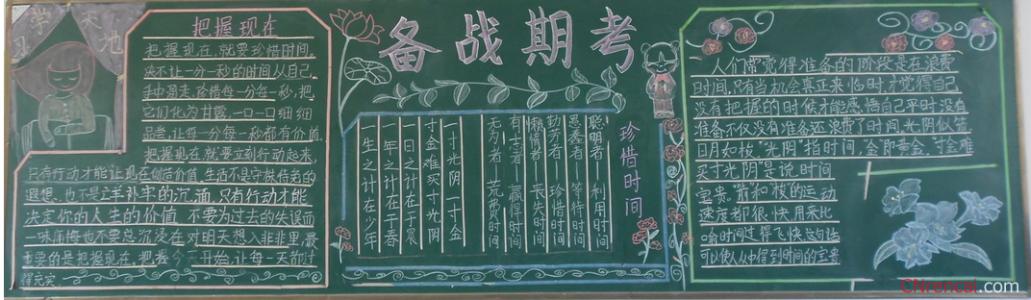 学习天地
把握现在
把握现在,就要珍惜时间,
决不让一分一秒的时间从自己
手中溜走,珍惜每一分每一秒,把
它们化为甘露,一口一口细细
品尝,让每一分每一秒都有价值
把握现在,就要立刻行动起来,
只有行动才能让现在创造价值,生活不是守株待兔的
遐想,也不是亡羊补牢的沉湎,只有行动才能
决定你的人生的价值 不要为过去的失误而
一味后悔也不要总沉浸在对明天想入非非里,最
重要的是把握现在,把握今天开始,让每一天都过
得充实.
备战期考
珍惜时间
聪明者—利用时间
愚蠢者—等待时间
勤劳者—珍惜时间
懒惰者—丧失时间
有志者—赢得时间
无为者 荒费时间
一寸光阴一寸金
寸金难买寸光阴
一日之计在于晨
一年之计在于春
一生之计在少年
人们常觉得准备的阶段是在浪费
时间,只有当机会真正来临时,才觉得自己
没有把握的时候才能感悟自己平时没有
准备不仅没有准备还浪费了时间.光阴似箭
日月如梭"光阴"指时间,金即黄金,寸金难
买寸光阴是说时间
宝贵.箭和梭的运动
速度都很快,用来比
喻时间过得飞快,这句话
可以使人从中得到时间的宝贵
CNrencai.com